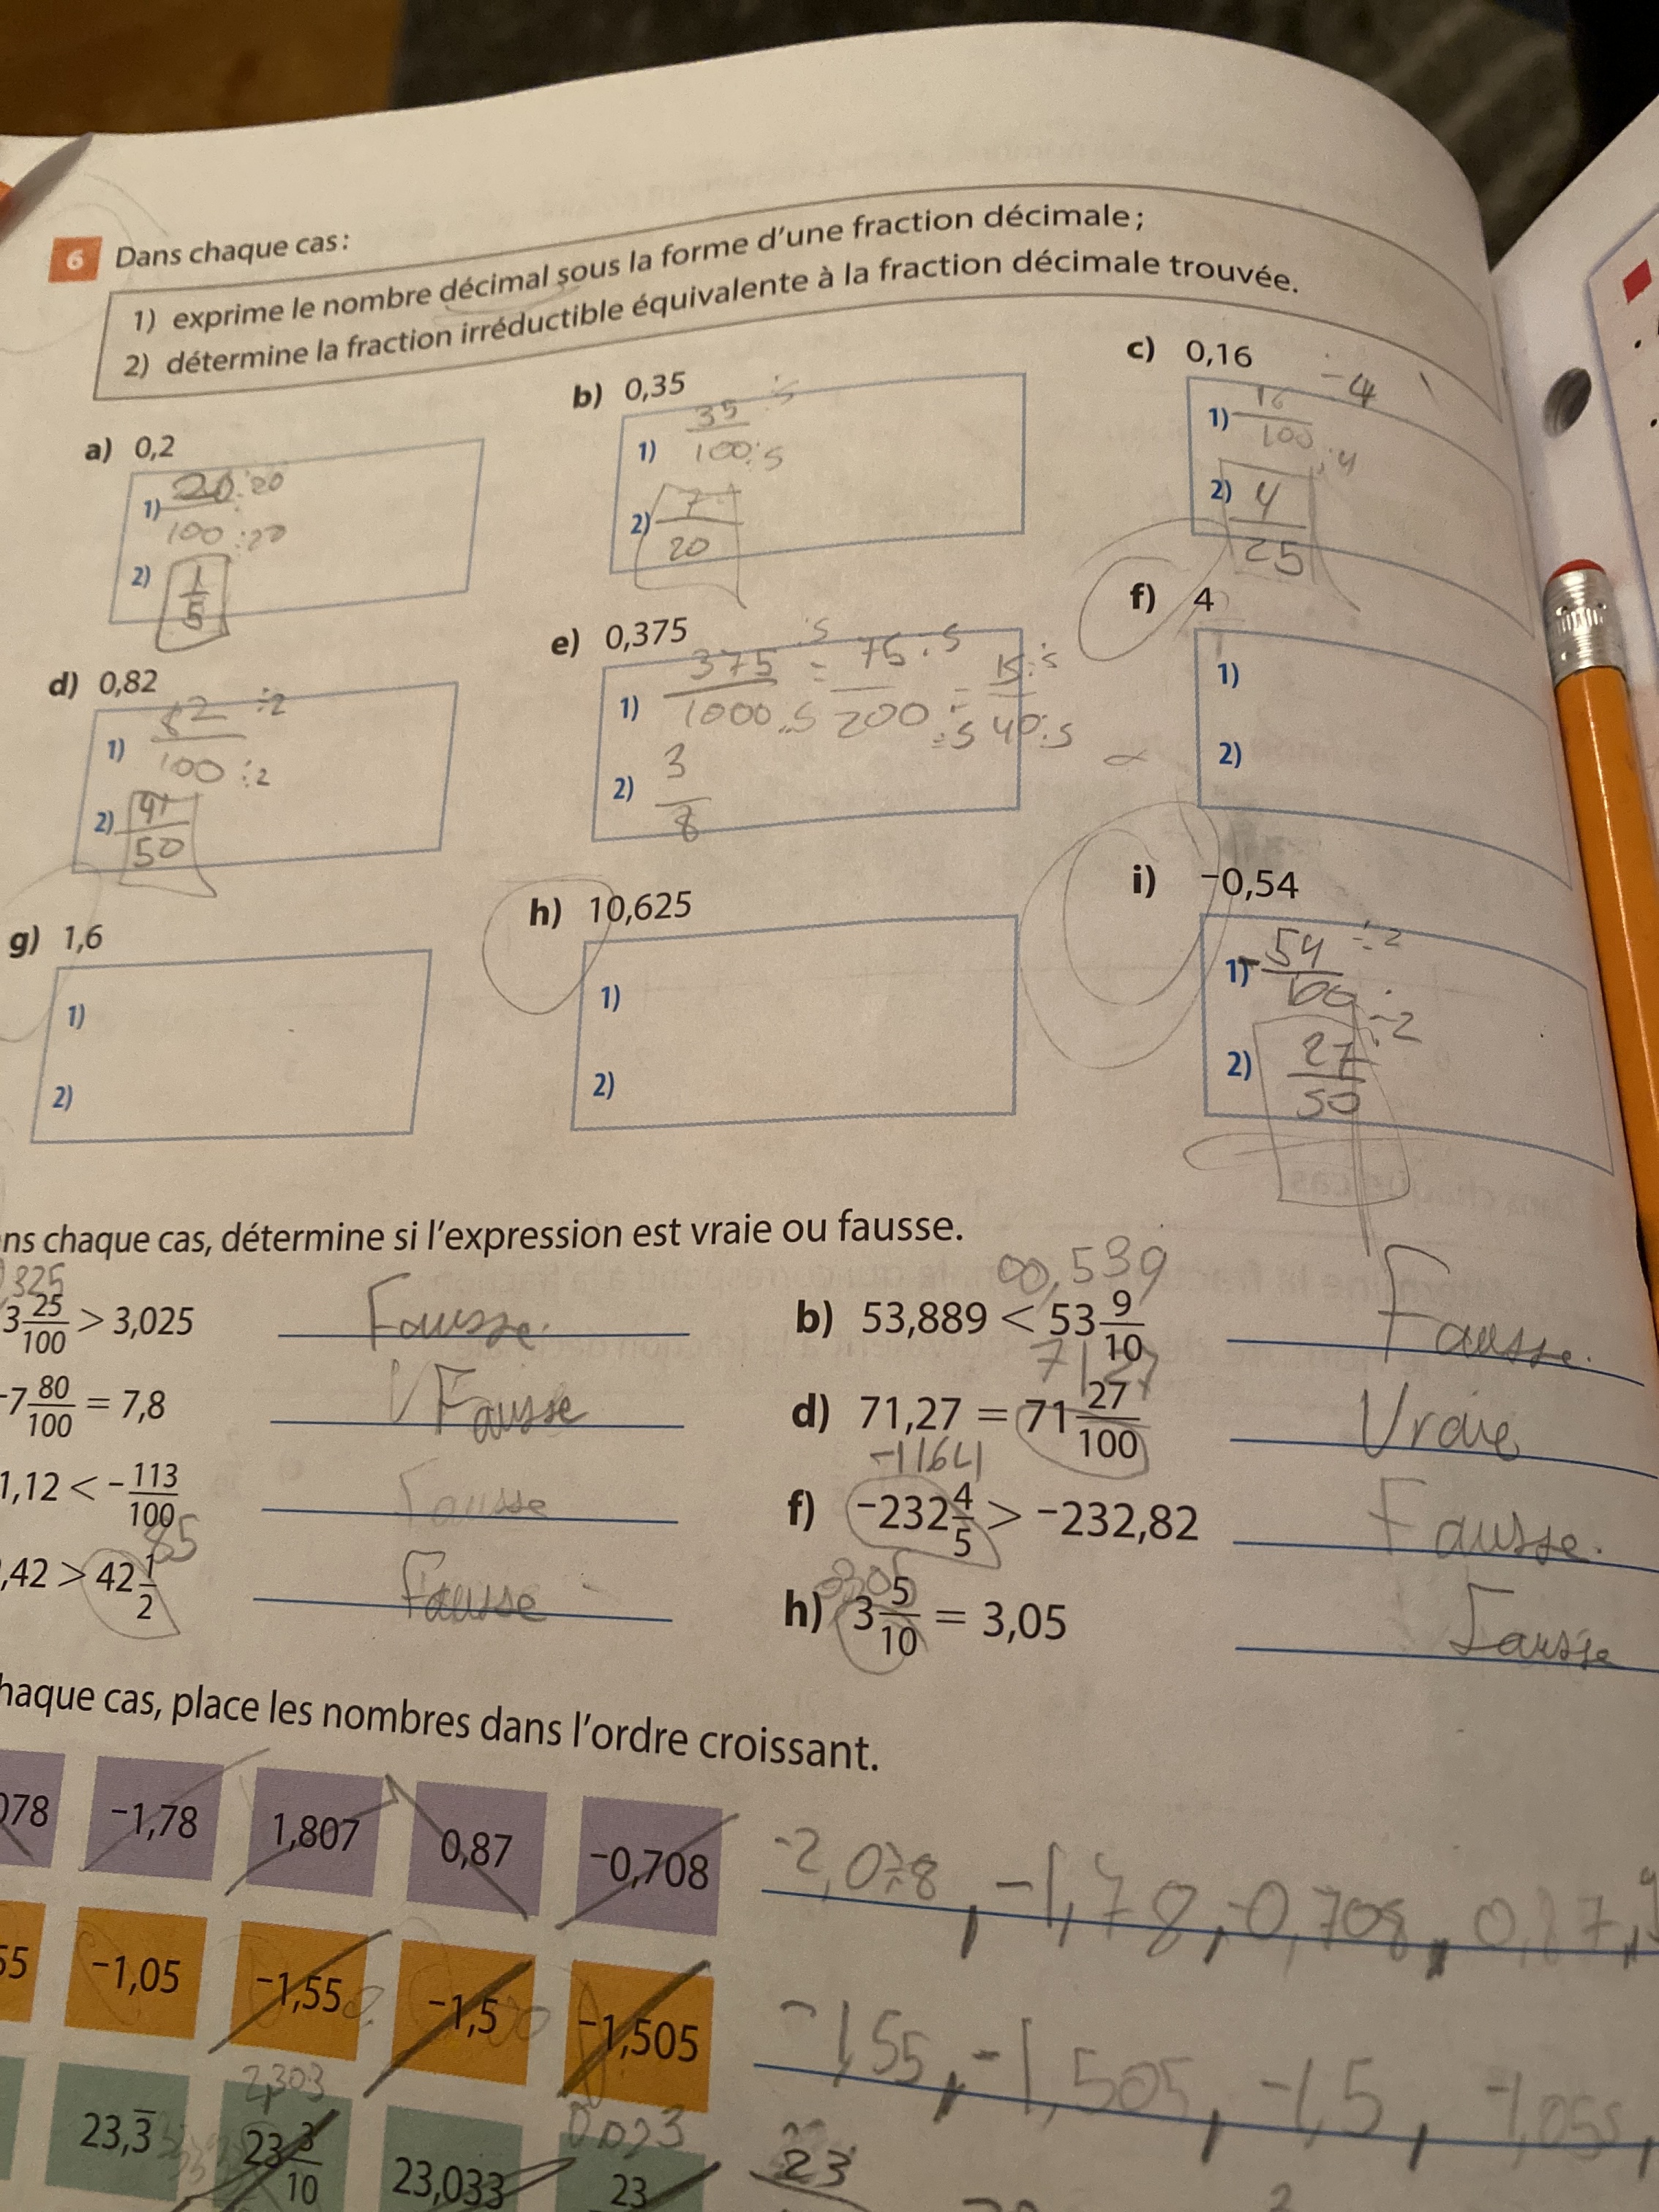 6 Dans chaque cas :
1) exprime le nombre décimal sous la forme d'une fraction décimale ;
2) détermine la fraction irréductible équivalente à la fraction décimale trouvée.
a) 0,2
1) 20/100 ÷20 ÷20
2) 1/5
b) 0,35
1) 35/100 ÷5 ÷5
2) 7/20
c) 0,16
1) 16/100 ÷4 ÷4
2) 4/25
d) 0,82
1) 82/100 ÷2 ÷2
2) 41/50
e) 0,375
1) 375/1000 ÷5 ÷5 = 75/200 ÷5 ÷5 = 15/40 ÷5 ÷5
2) 3/8
f) 4
1)
2)
g) 1,6
1)
2)
h) 10,625
1)
2)
i) -0,54
1) -54/100 ÷2 ÷2
2) 27/50
ns chaque cas, détermine si l'expression est vraie ou fausse.
325
3 25/100 > 3,025 Fausse.
00,539
b) 53,889 < 53 9/10 Fausse.
-7 80/100 = 7,8 Fausse
71,27
d) 71,27 = 71 27/100 Vraie
1,12 < -113/100 Fausse
-1164
f) -232 4/5 > -232,82 Fausse.
85
,42 > 42 1/2 Fausse
h) 3 5/10 = 3,05 Fausse
haque cas, place les nombres dans l'ordre croissant.
078 -1,78 1,807 0,87 -0,708 -2,078, -1,78, -0,708, 0,87,
55 -1,05 -1,55 -1,5 -1,505 -1,55, -1,505, -1,5, -1,055,
2,303 0,023
23,3̅ 23 3/10 23,033 23 23